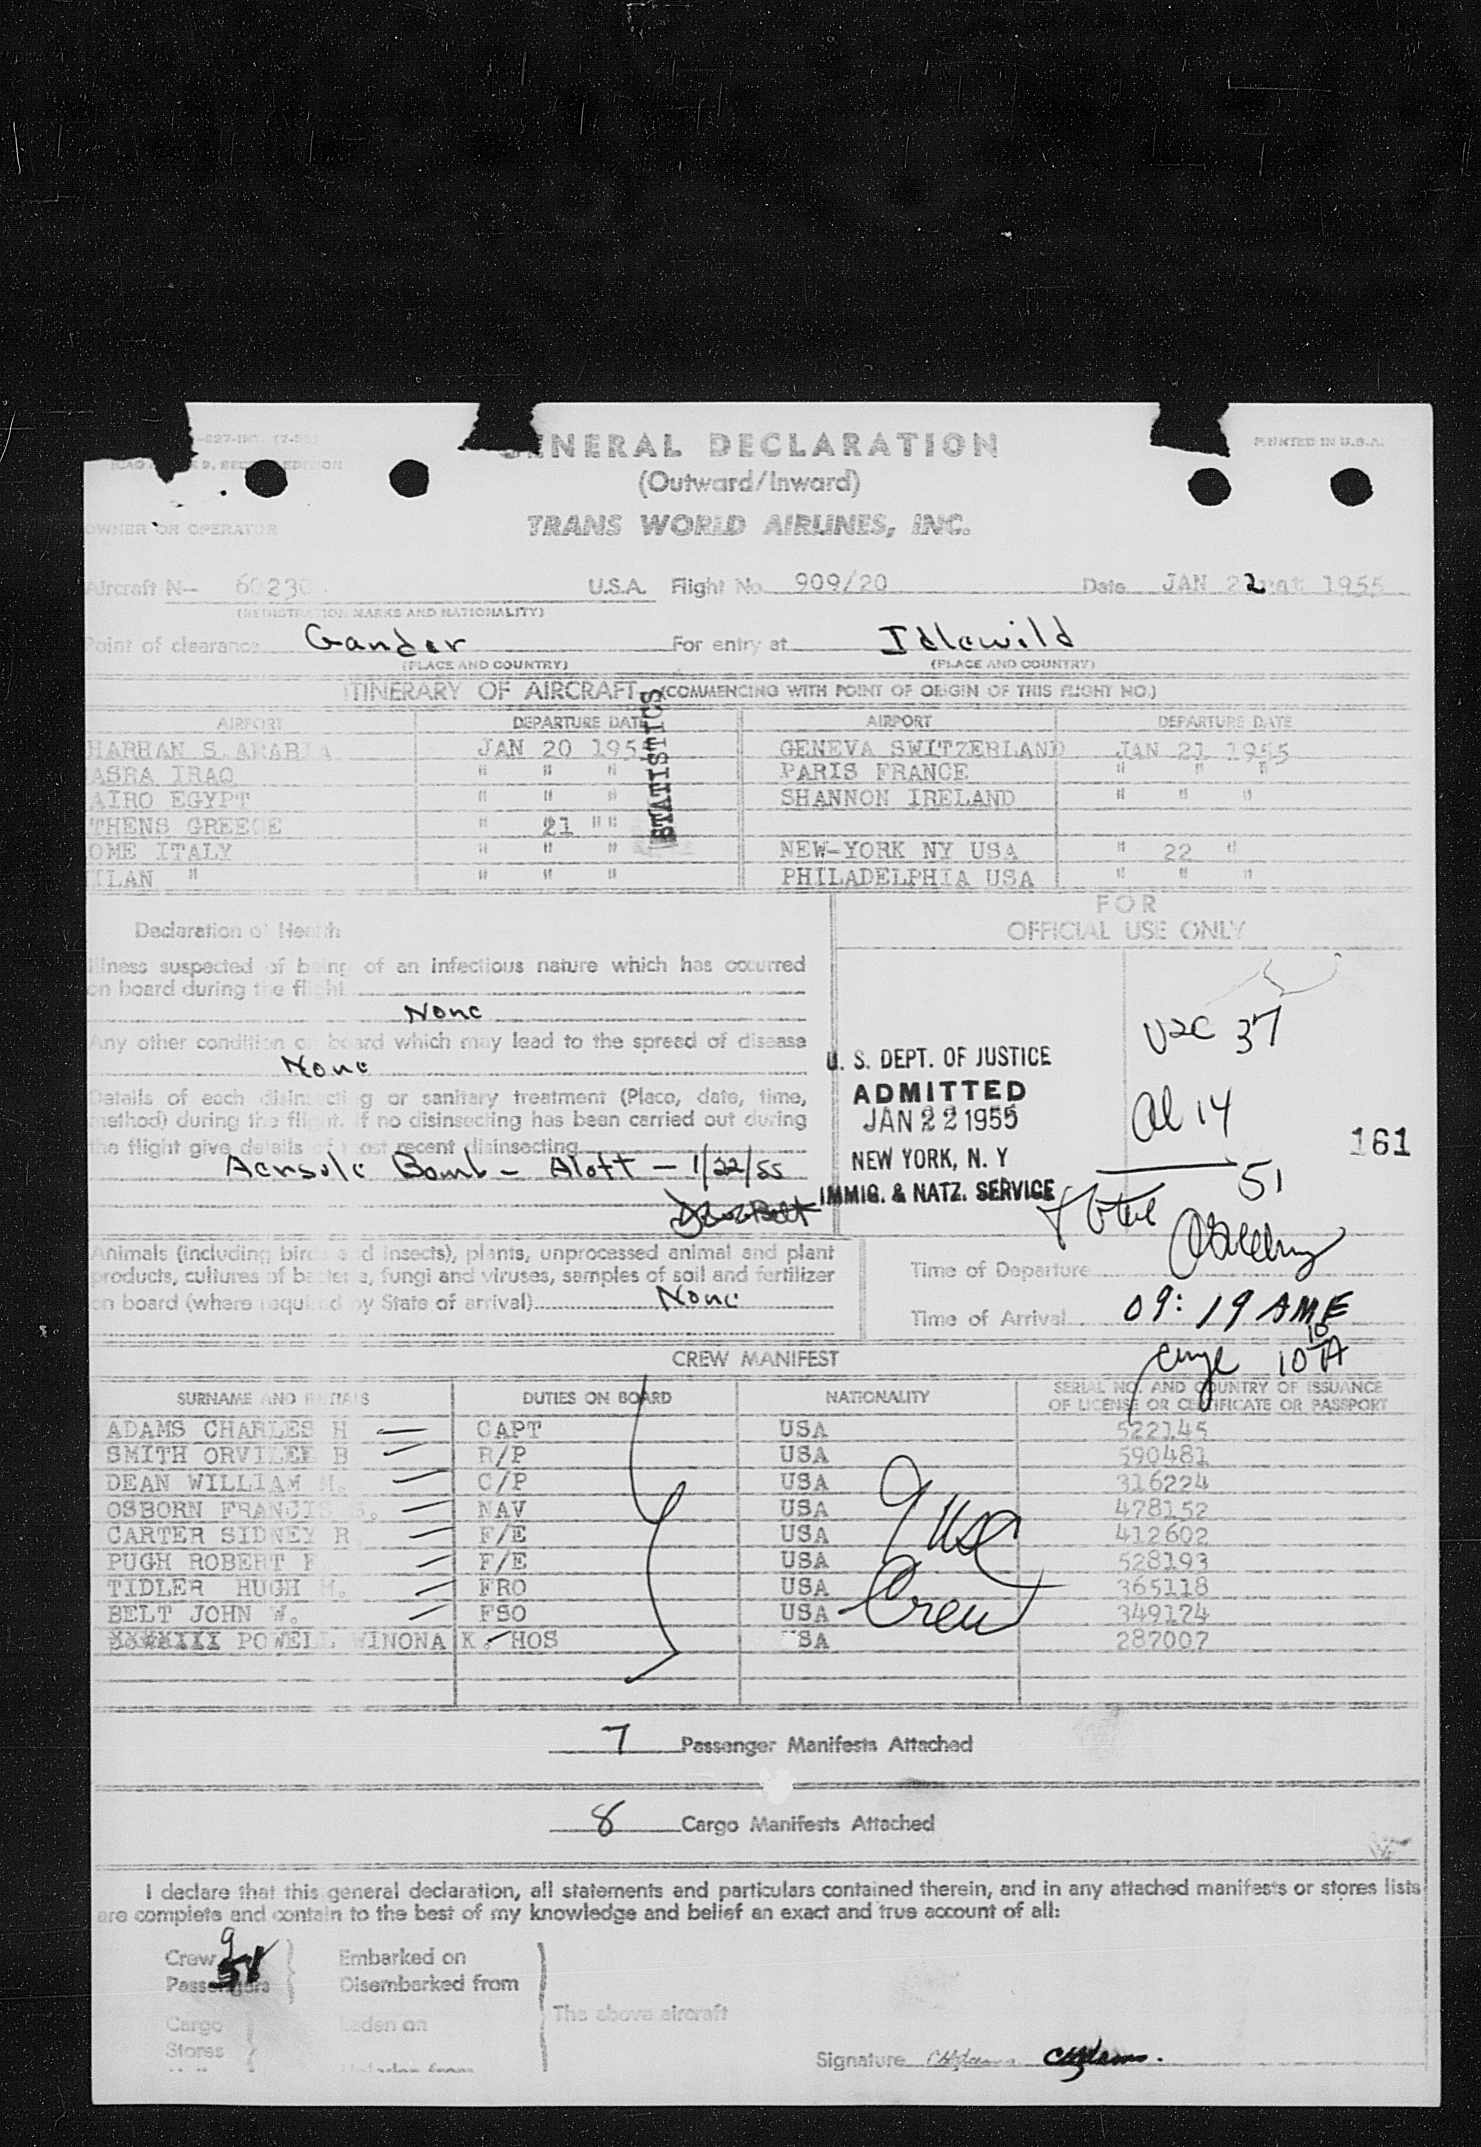 -827-INC. (7-53)
ICAO 9, SECOND EDITION
PRINTED IN U.S.A.
GENERAL DECLARATION
(Outward/Inward)
OWNER OR OPERATOR
TRANS WORLD AIRLINES, INC.
Aircraft N-- 6023C U.S.A. Flight No. 909/20 Date JAN 22 1955
(REGISTRATION MARKS AND NATIONALITY)
Point of clearance Gander For entry at Idlewild
(PLACE AND COUNTRY) (PLACE AND COUNTRY)
ITINERARY OF AIRCRAFT (COMMENCING WITH POINT OF ORIGIN OF THIS FLIGHT NO.)
STATISTICS
AIRPORT DEPARTURE DATE AIRPORT DEPARTURE DATE
HARHAN S.ARABIA JAN 20 1955 GENEVA SWITZERLAND JAN 21 1955
ASRA IRAQ " " " PARIS FRANCE " " "
AIRO EGYPT " " " SHANNON IRELAND " " "
THENS GREECE " 21 ""
OME ITALY " " " NEW-YORK NY USA " 22 "
ILAN " " " " PHILADELPHIA USA " " "
FOR
OFFICIAL USE ONLY
Declaration of Health
Illness suspected of being of an infectious nature which has occurred
on board during the flight
None
Any other condition on board which may lead to the spread of disease
None
Details of each disinsecting or sanitary treatment (Place, date, time,
method) during the flight. If no disinsecting has been carried out during
the flight give details of most recent disinsecting
Aerosole Bomb - Aloft - 1/22/55
U. S. DEPT. OF JUSTICE
ADMITTED
JAN 22 1955
NEW YORK, N. Y
IMMIG. & NATZ. SERVICE
USC 37
al 14
51
161
Total
Animals (including birds and insects), plants, unprocessed animal and plant
products, cultures of bacteria, fungi and viruses, samples of soil and fertilizer
on board (where required by State of arrival) None
Time of Departure
Time of Arrival 09:19 AME
CREW MANIFEST
SURNAME AND INITIALS DUTIES ON BOARD NATIONALITY SERIAL NO. AND COUNTRY OF ISSUANCE
OF LICENSE OR CERTIFICATE OR PASSPORT
ADAMS CHARLES H CAPT USA 522145
SMITH ORVILLE B R/P USA 590481
DEAN WILLIAM M. C/P USA 316224
OSBORN FRANCIS S. NAV USA 478152
CARTER SIDNEY R F/E USA 412602
PUGH ROBERT F F/E USA 528193
TIDLER HUGH M. FRO USA 365118
BELT JOHN W. FSO USA 349174
POWELL WINONA K. HOS USA 287007
9 USC
Crew
7 Passenger Manifests Attached
8 Cargo Manifests Attached
I declare that this general declaration, all statements and particulars contained therein, and in any attached manifests or stores lists
are complete and contain to the best of my knowledge and belief an exact and true account of all:
Crew 9 Embarked on
Passengers Disembarked from
The above aircraft
Cargo Laden on
Stores
Signature CHAdams CHAdams.